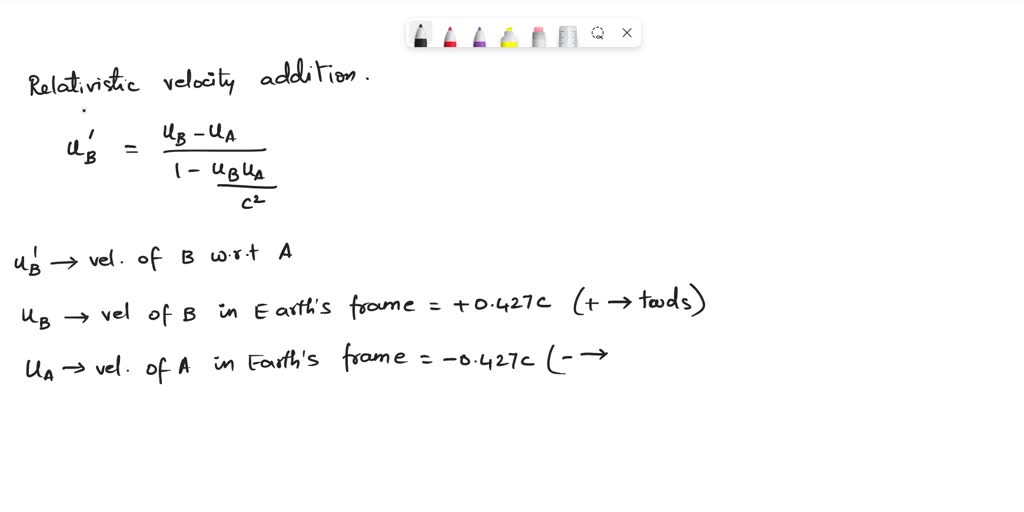 Relativistic velocity addition.
u'B = uB - uA / 1 - uBuA / c²
u'B → vel. of B w.r.t A
uB → vel of B in Earth's frame = +0.427c (+ → towds)
uA → vel. of A in Earth's frame = -0.427c (- →